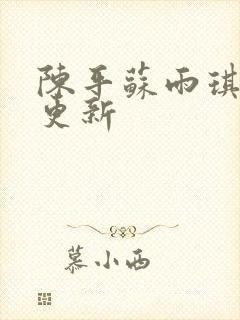 陳平蘇雨琪
更新
慕小西